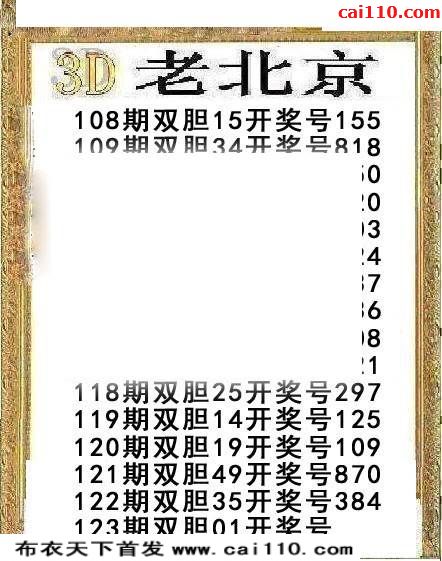 cai110.com
3D 老北京
108期双胆15开奖号155
109期双胆34开奖号818
50
20
03
24
37
36
08
21
118期双胆25开奖号297
119期双胆14开奖号125
120期双胆19开奖号109
121期双胆49开奖号870
122期双胆35开奖号384
123期双胆01开奖号
布衣天下首发 www.cai110.com